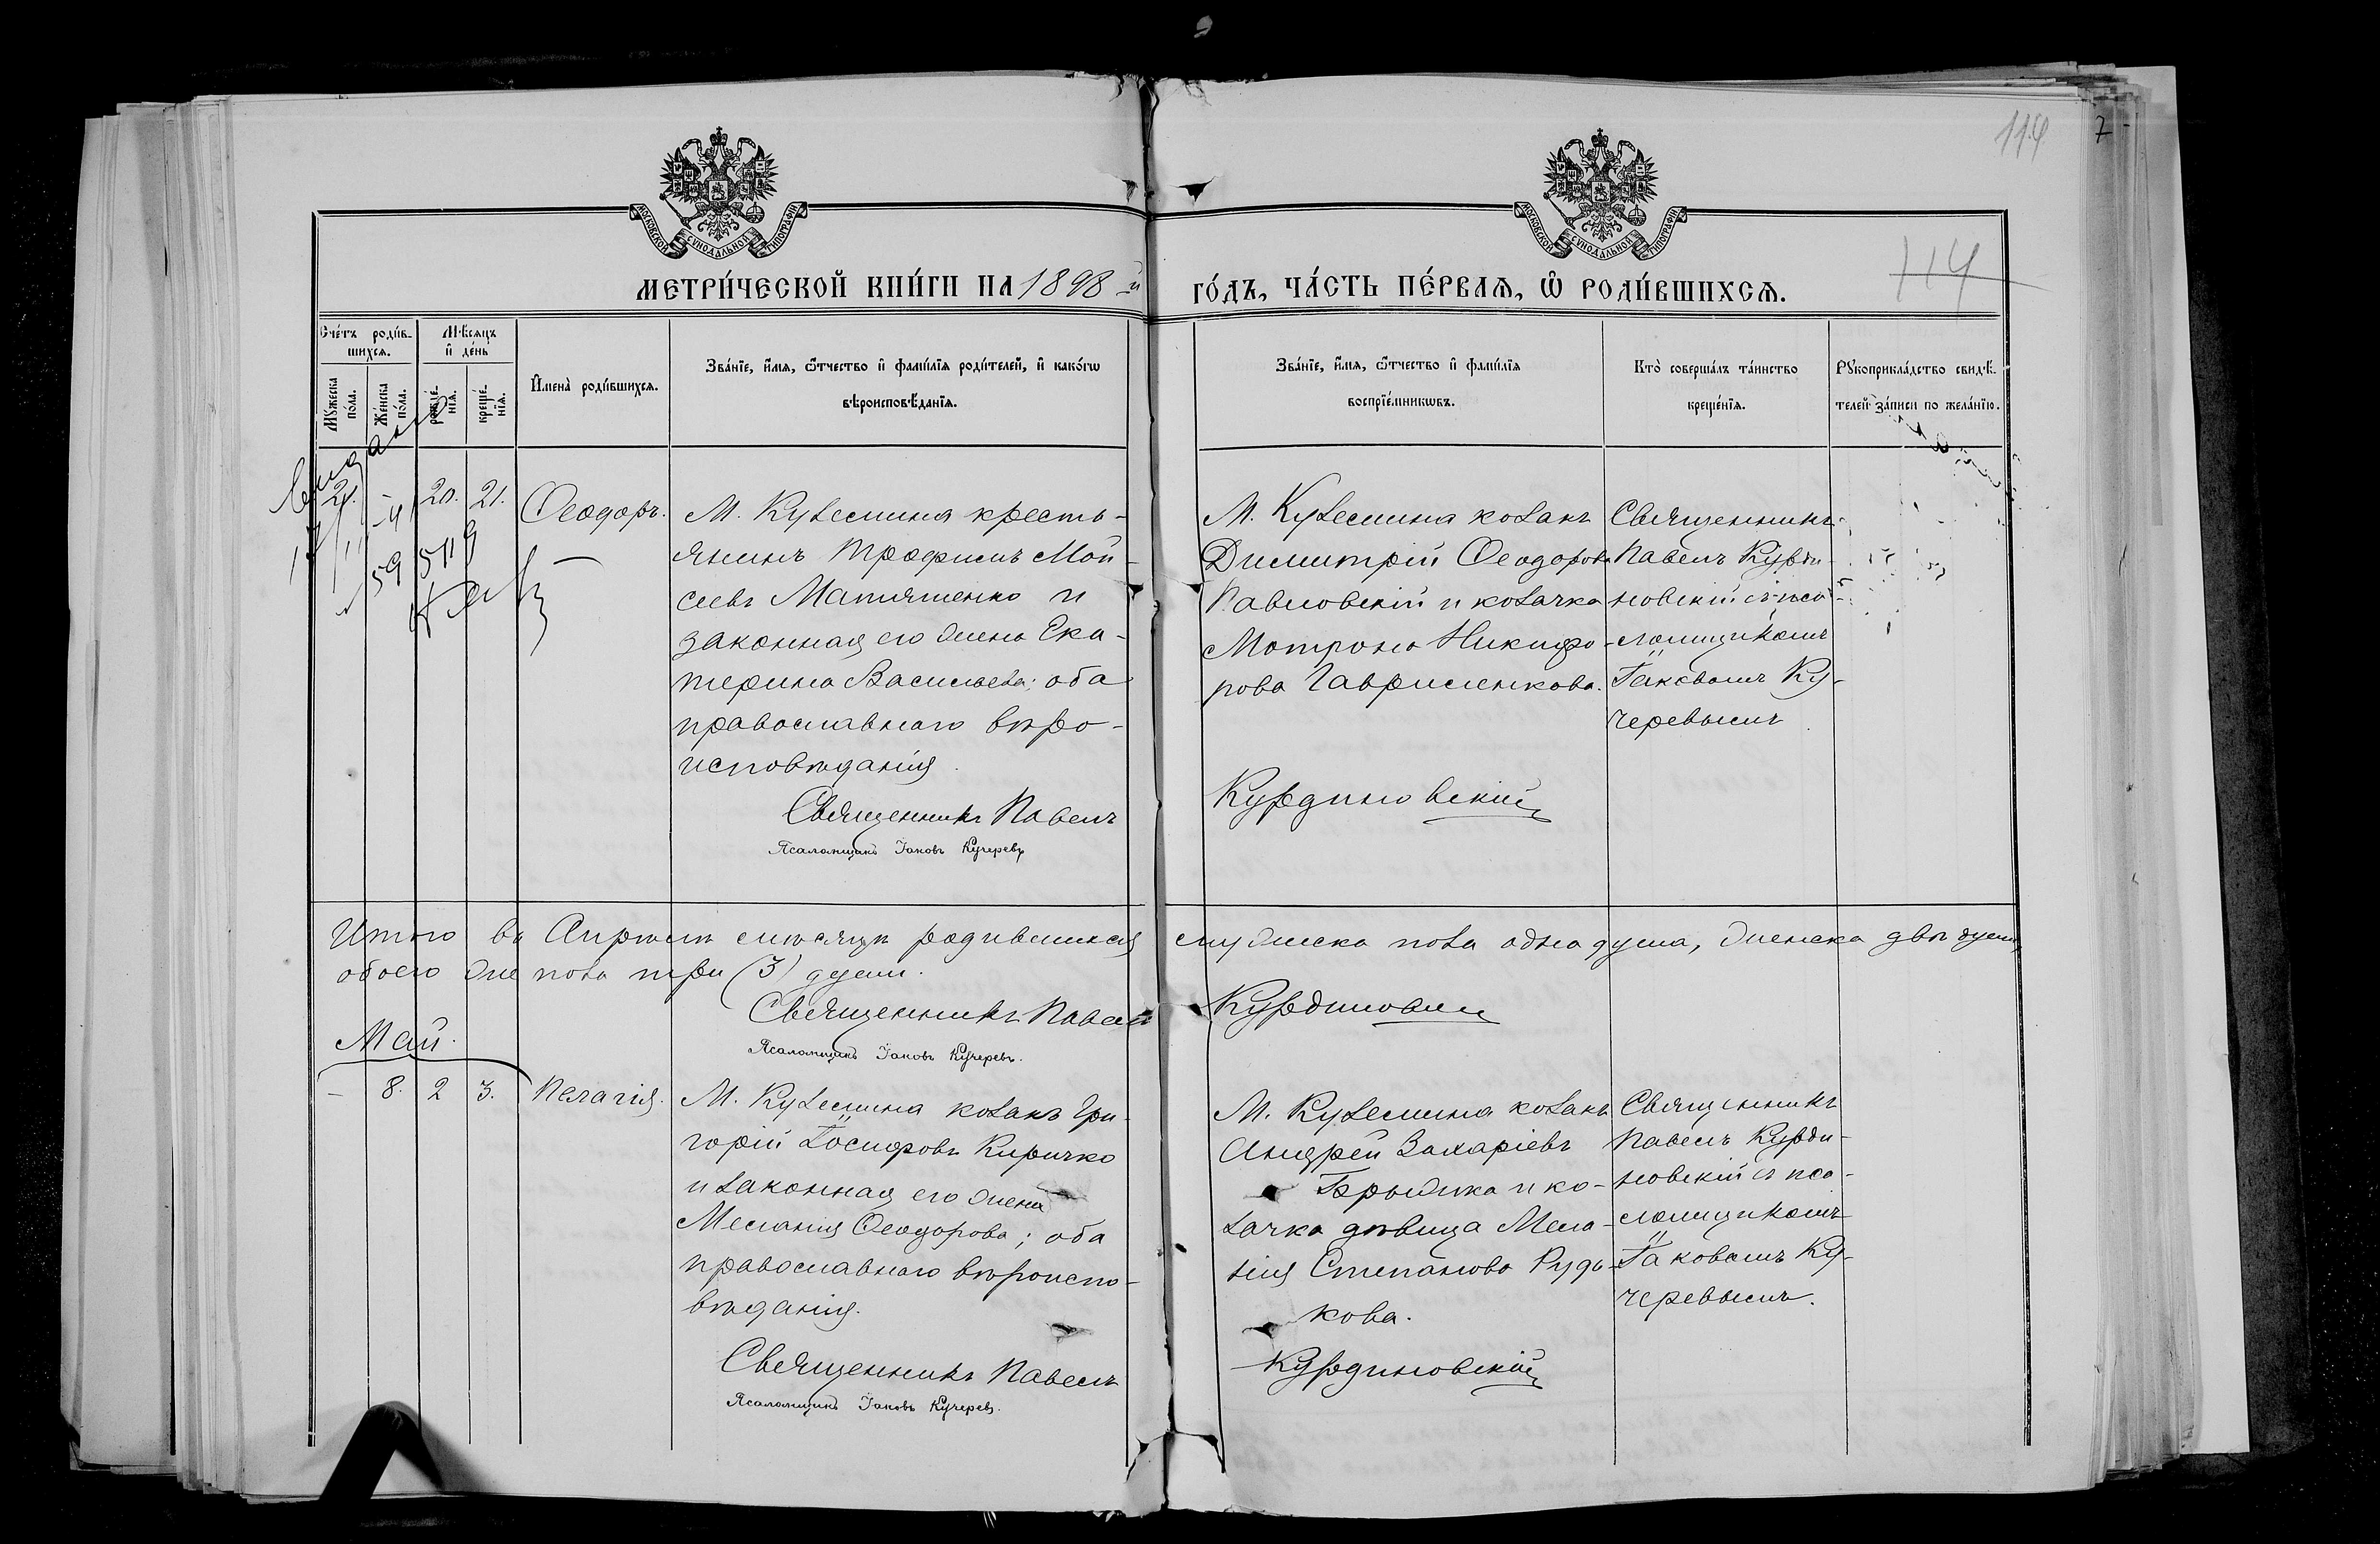 119
7
МОСКОВСКОЙ СѴНОДАЛЬНОЙ ТИПОГРАФІИ
МОСКОВСКОЙ СѴНОДАЛЬНОЙ ТИПОГРАФІИ
МЕТРИ́ЧЕСКОЙ КНИ́ГИ НА 1898 й
ГО́ДЪ, ЧА́СТЬ ПЕ́РВАѦ, Ѽ РОДИ́ВШИХСѦ.
114
Сче́тъ роди́в-
шихсѧ.
Мѣ́сѧцъ
и҆ де́нь
Мꙋ́жеска
по́ла.
Же́нска
по́ла.
рожде́-
нїѧ.
креще́-
нїѧ.
И҆мена̀ роди́вшихсѧ.
Зва́нїе, и҆́мѧ, ѻ҆́тчество и҆ фами́лїѧ роди́телей, и҆ како́гѡ
вѣроисповѣ́данїѧ.
Зва́нїе, и҆́мѧ, ѻ҆́тчество и҆ фами́лїѧ
воспрїе́мникѡвъ.
Кто̀ соверша́лъ та́инство
креще́нїѧ.
Рꙋкоприкла́дство свидѣ́-
телей за́писи по жела́нїю.
20. 21.
Ѳеодоръ.
М. Куземина кресть-
янинъ Трофимъ Мои-
сеевъ Матяшенко и
законная его жена Ека-
терина Васильева; оба
православнаго вѣро-
исповѣданія.
Священникъ Павелъ
Псаломщикъ Іаковъ Кучеревъ
М. Куземина козакъ
Димитрій Ѳеодоровъ
Павловскій и козачка
Мотрона Никифо-
рова Гавриленкова.
Курдиновскій
Священникъ
Павелъ Курди-
новскій съ пса-
ломщикомъ
Іаковомъ Ку-
черевымъ
Итого въ Апрѣлѣ мѣсяцѣ родившихся мужеска пола одна душа, женска двѣ души,
обоего же пола три (3) души.
Священникъ Павелъ Курдиновскій
Псаломщикъ Іаковъ Кучеревъ.
Май.
– 8. 2 3.
Пелагія.
М. Куземина козакъ Гри-
горій Іосифовъ Киричко
и законная его жена
Меланія Ѳеодорова; оба
православнаго вѣроиспо-
вѣданія.
Священникъ Павелъ
Псаломщикъ Іаковъ Кучеревъ.
М. Куземина козакъ
Андрей Захаріевъ
Брыжка и ко-
зачка дѣвица Мела-
нія Степанова Рудь-
кова.
Курдиновскій
Священникъ
Павелъ Курди-
новскій съ пса-
ломщикомъ
Іаковомъ Ку-
черевымъ.